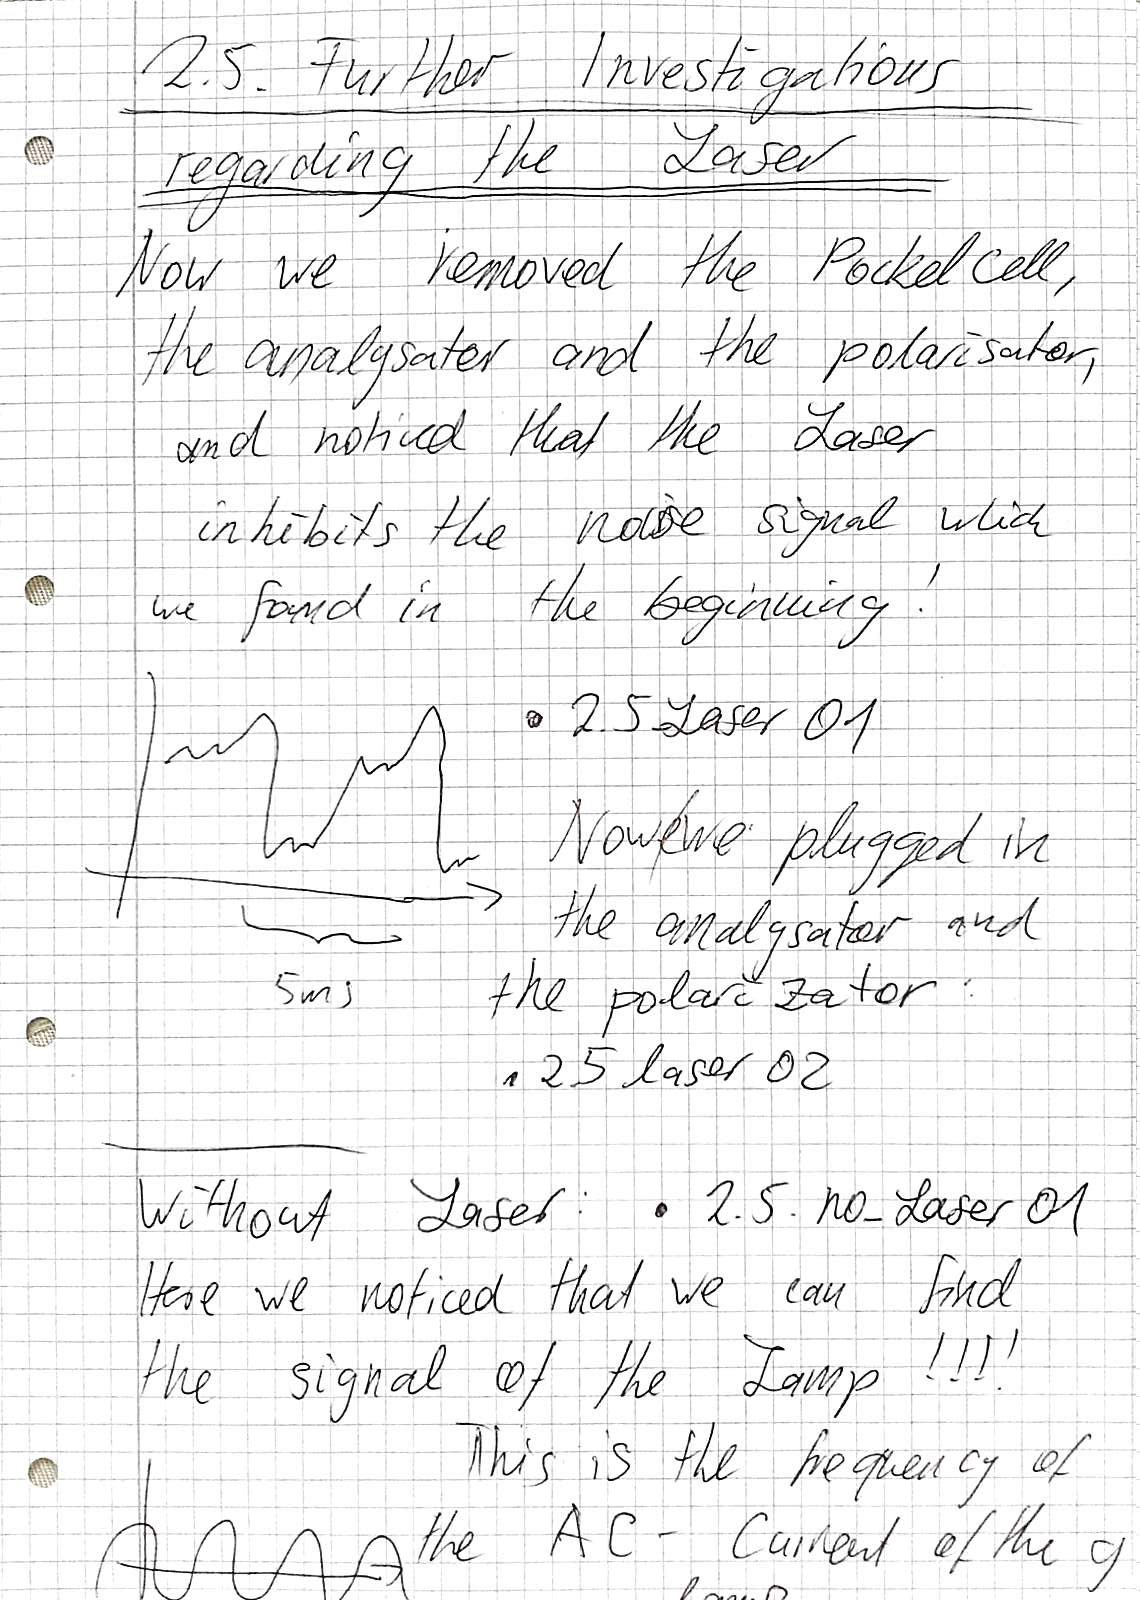 2.5. Further Investigations
regarding the Laser
Now we removed the Pockelcell,
the analysator and the polarisator,
and noticed that the Laser
inhibits the noise signal which
we found in the beginning!
• 2.5_Laser 01
Now we plugged in
the analysator and
5ms the polarizator:
• 25 laser 02
Without Laser: • 2.5. no_Laser 01
Here we noticed that we can find
the signal of the Lamp !!!!
This is the frequency of
the AC - Current of the g